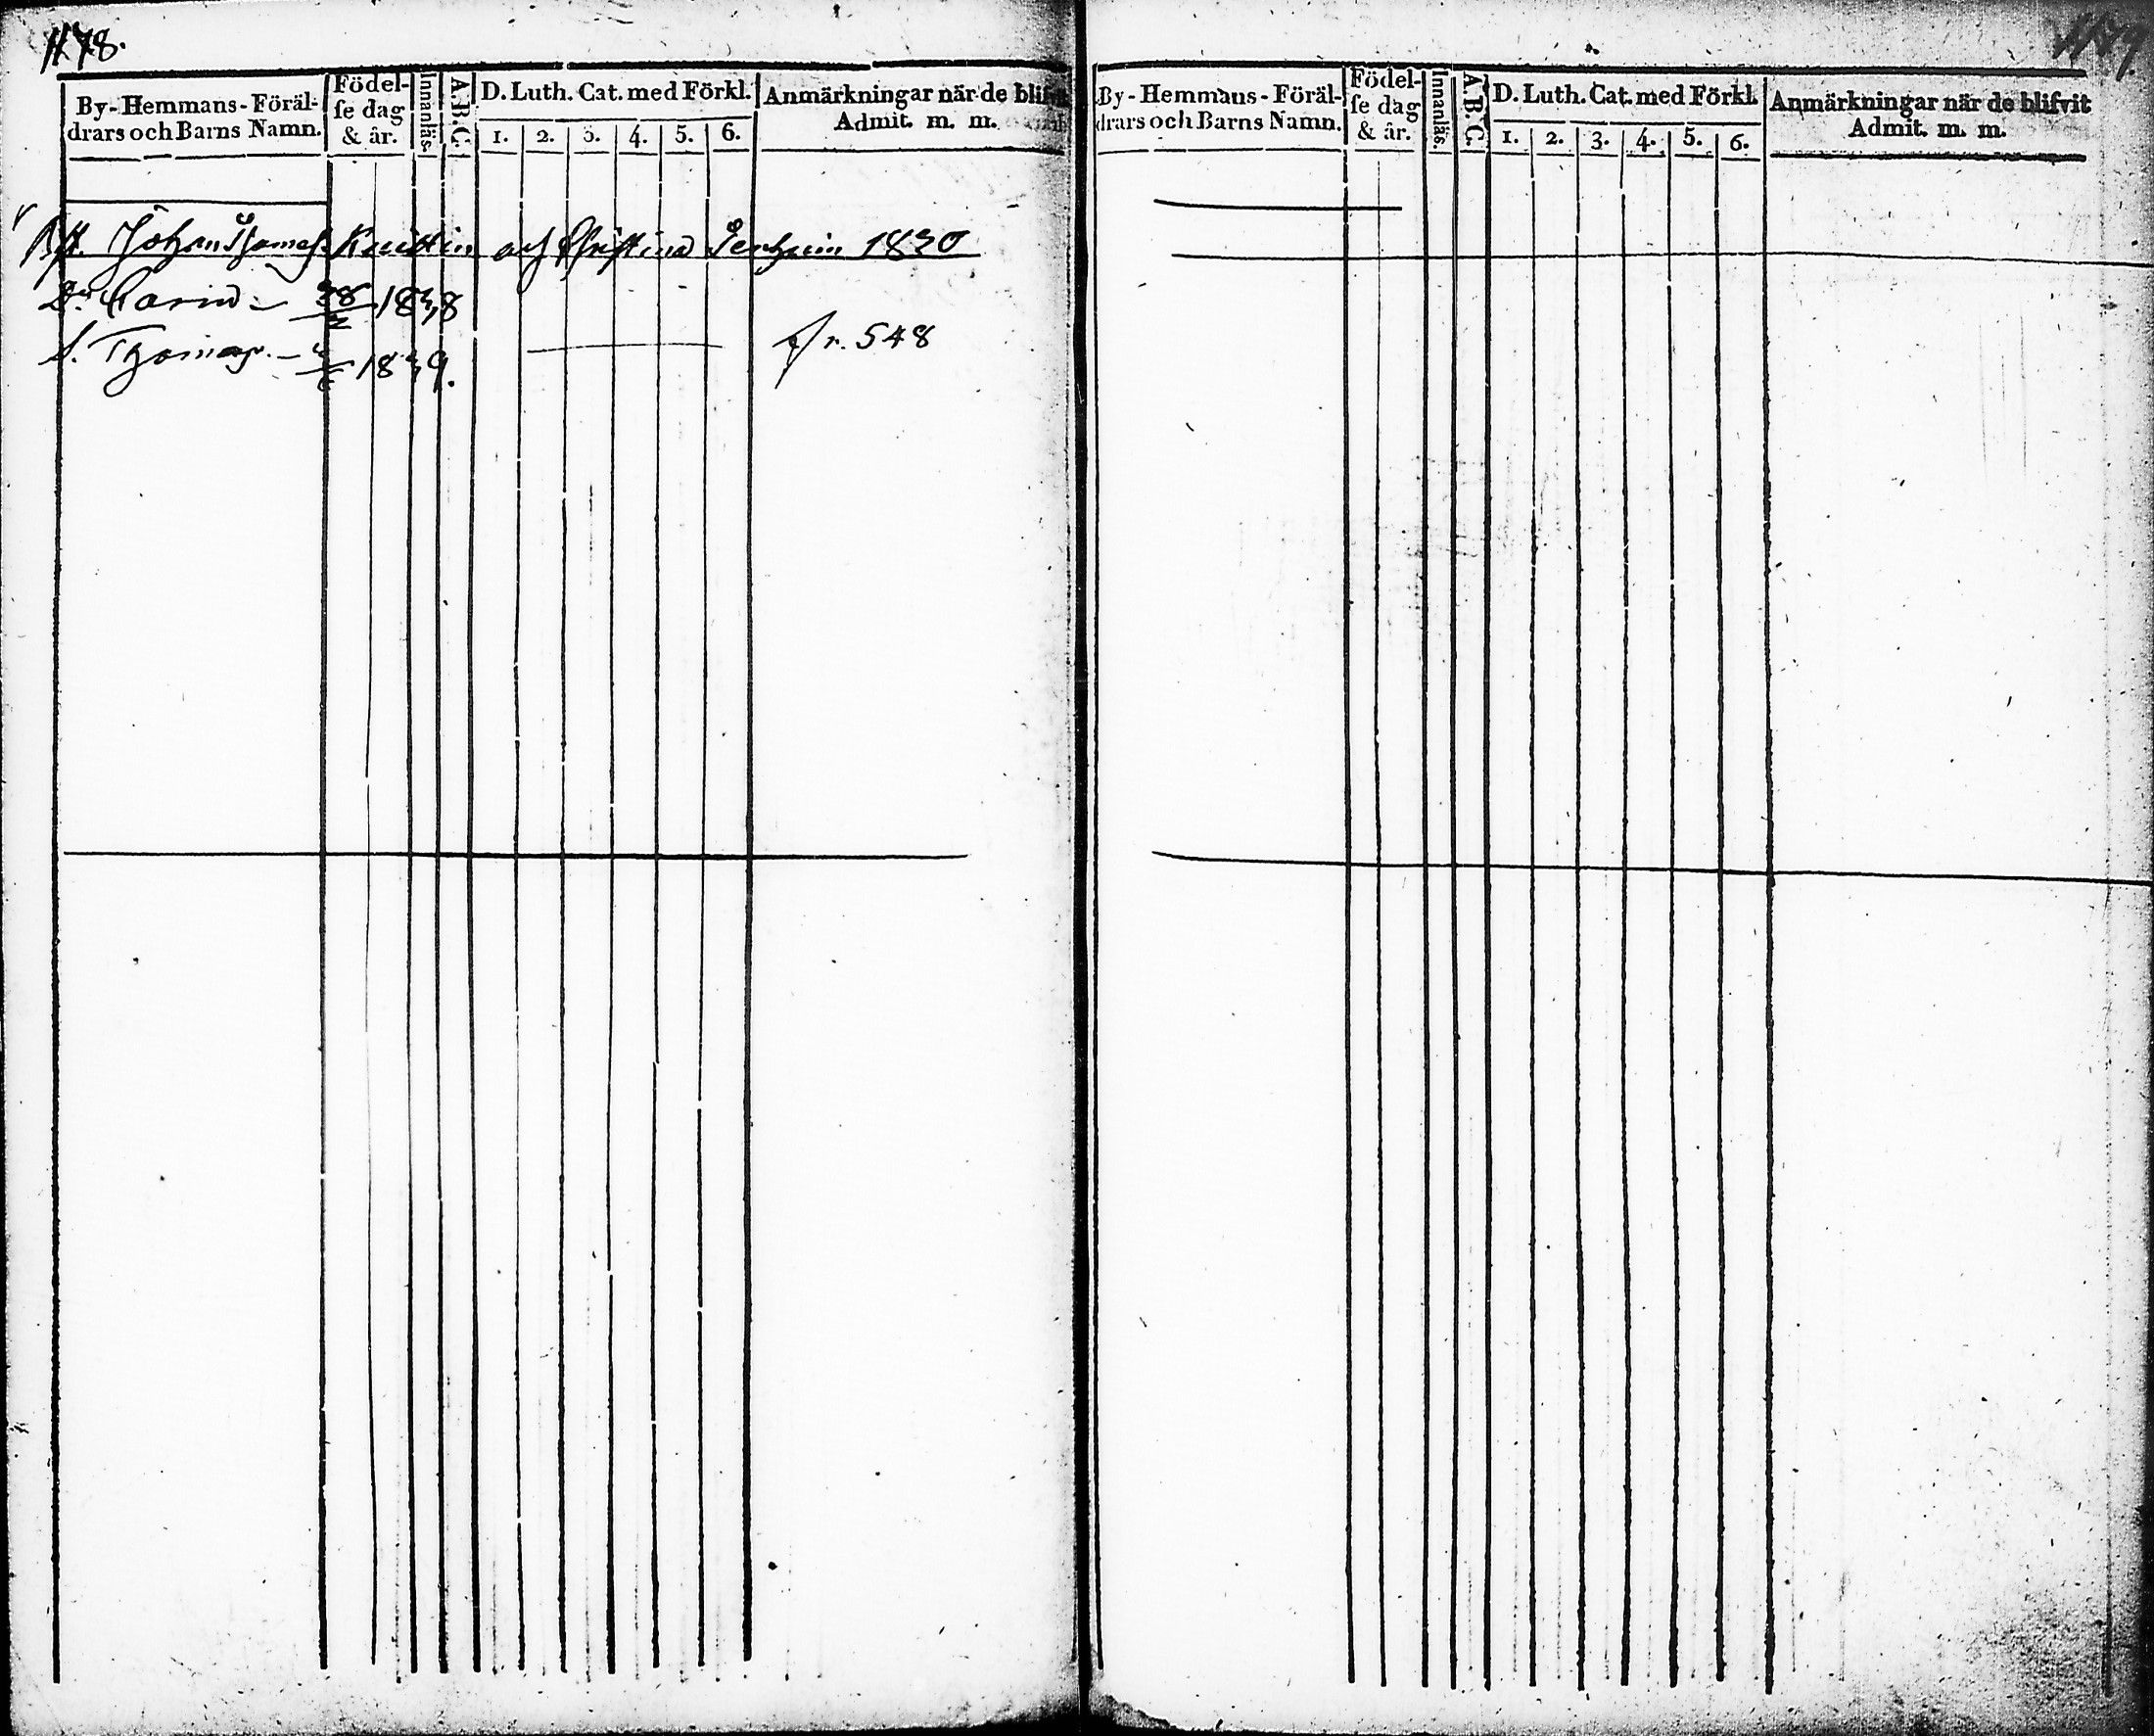 1178.
By-Hemmans-Föräl-
drars och Barns Namn.
Födel-
ſe dag
& år.
Innanläs.
A.B.C.
D. Luth. Cat. med Förkl.
1. 2. 3. 4. 5. 6.
Anmärkningar när de blifvit
Admit. m. m.
Johan Thomass. Knuttin och Christina 1830
Dr. Carin 1838
S. Thomas. 1839.
fr. 548
1179.
By-Hemmans-Föräl-
drars och Barns Namn.
Födel-
ſe dag
& år.
Innanläs.
A.B.C.
D. Luth. Cat. med Förkl.
1. 2. 3. 4. 5. 6.
Anmärkningar när de blifvit
Admit. m. m.